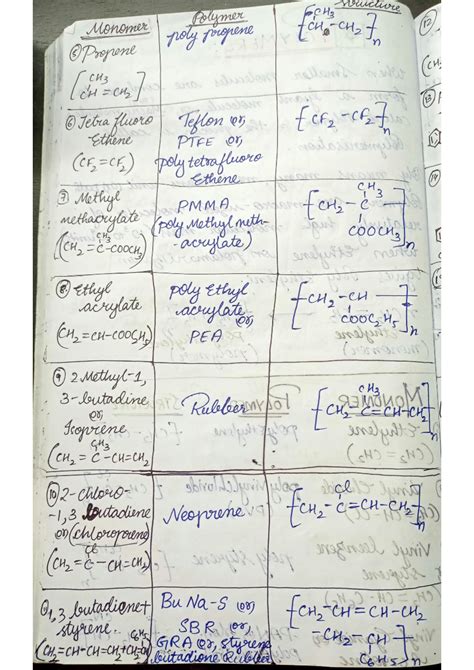 Monomer
Polymer
Structure
⑤ Propene
[CH3
CH = CH2]
poly propene
[CH3
CH - CH2]n
⑥ Tetra fluoro
Ethene
(CF2 = CF2)
Teflon or,
PTFE or,
poly tetrafluoro
Ethene
[CF2 - CF2]n
⑦ Methyl
methacrylate
(CH2 = C - COOCH3
CH3
PMMA
(poly Methyl meth-
-acrylate)
CH3
[CH2 - C
COOCH3]n
⑧ Ethyl
acrylate
(CH2 = CH - COOC2H5)
poly Ethyl
acrylate
or
PEA
[CH2 - CH
COOC2H5]n
⑨ 2 Methyl-1,
3-butadine
or
Isoprene
CH3
(CH2 = C - CH = CH2)
Rubber
CH3
[CH2 - C = CH - CH2]n
⑩ 2-chloro-
-1,3 butadiene
or (chloroprene)
Cl
(CH2 = C - CH = CH2)
Neoprene
Cl
[CH2 - C = CH - CH2]n
1,3 butadiene +
styrene.
C6H5
(CH2 = CH - CH = CH2 +
Bu Na-S or)
SBR or)
GRA or, styrene
butadiene Rubber
[CH2 - CH = CH - CH2
- CH2 - CH]n
C6H5
⑫
(CH
⑬
⑭
MONOMER
Polymer